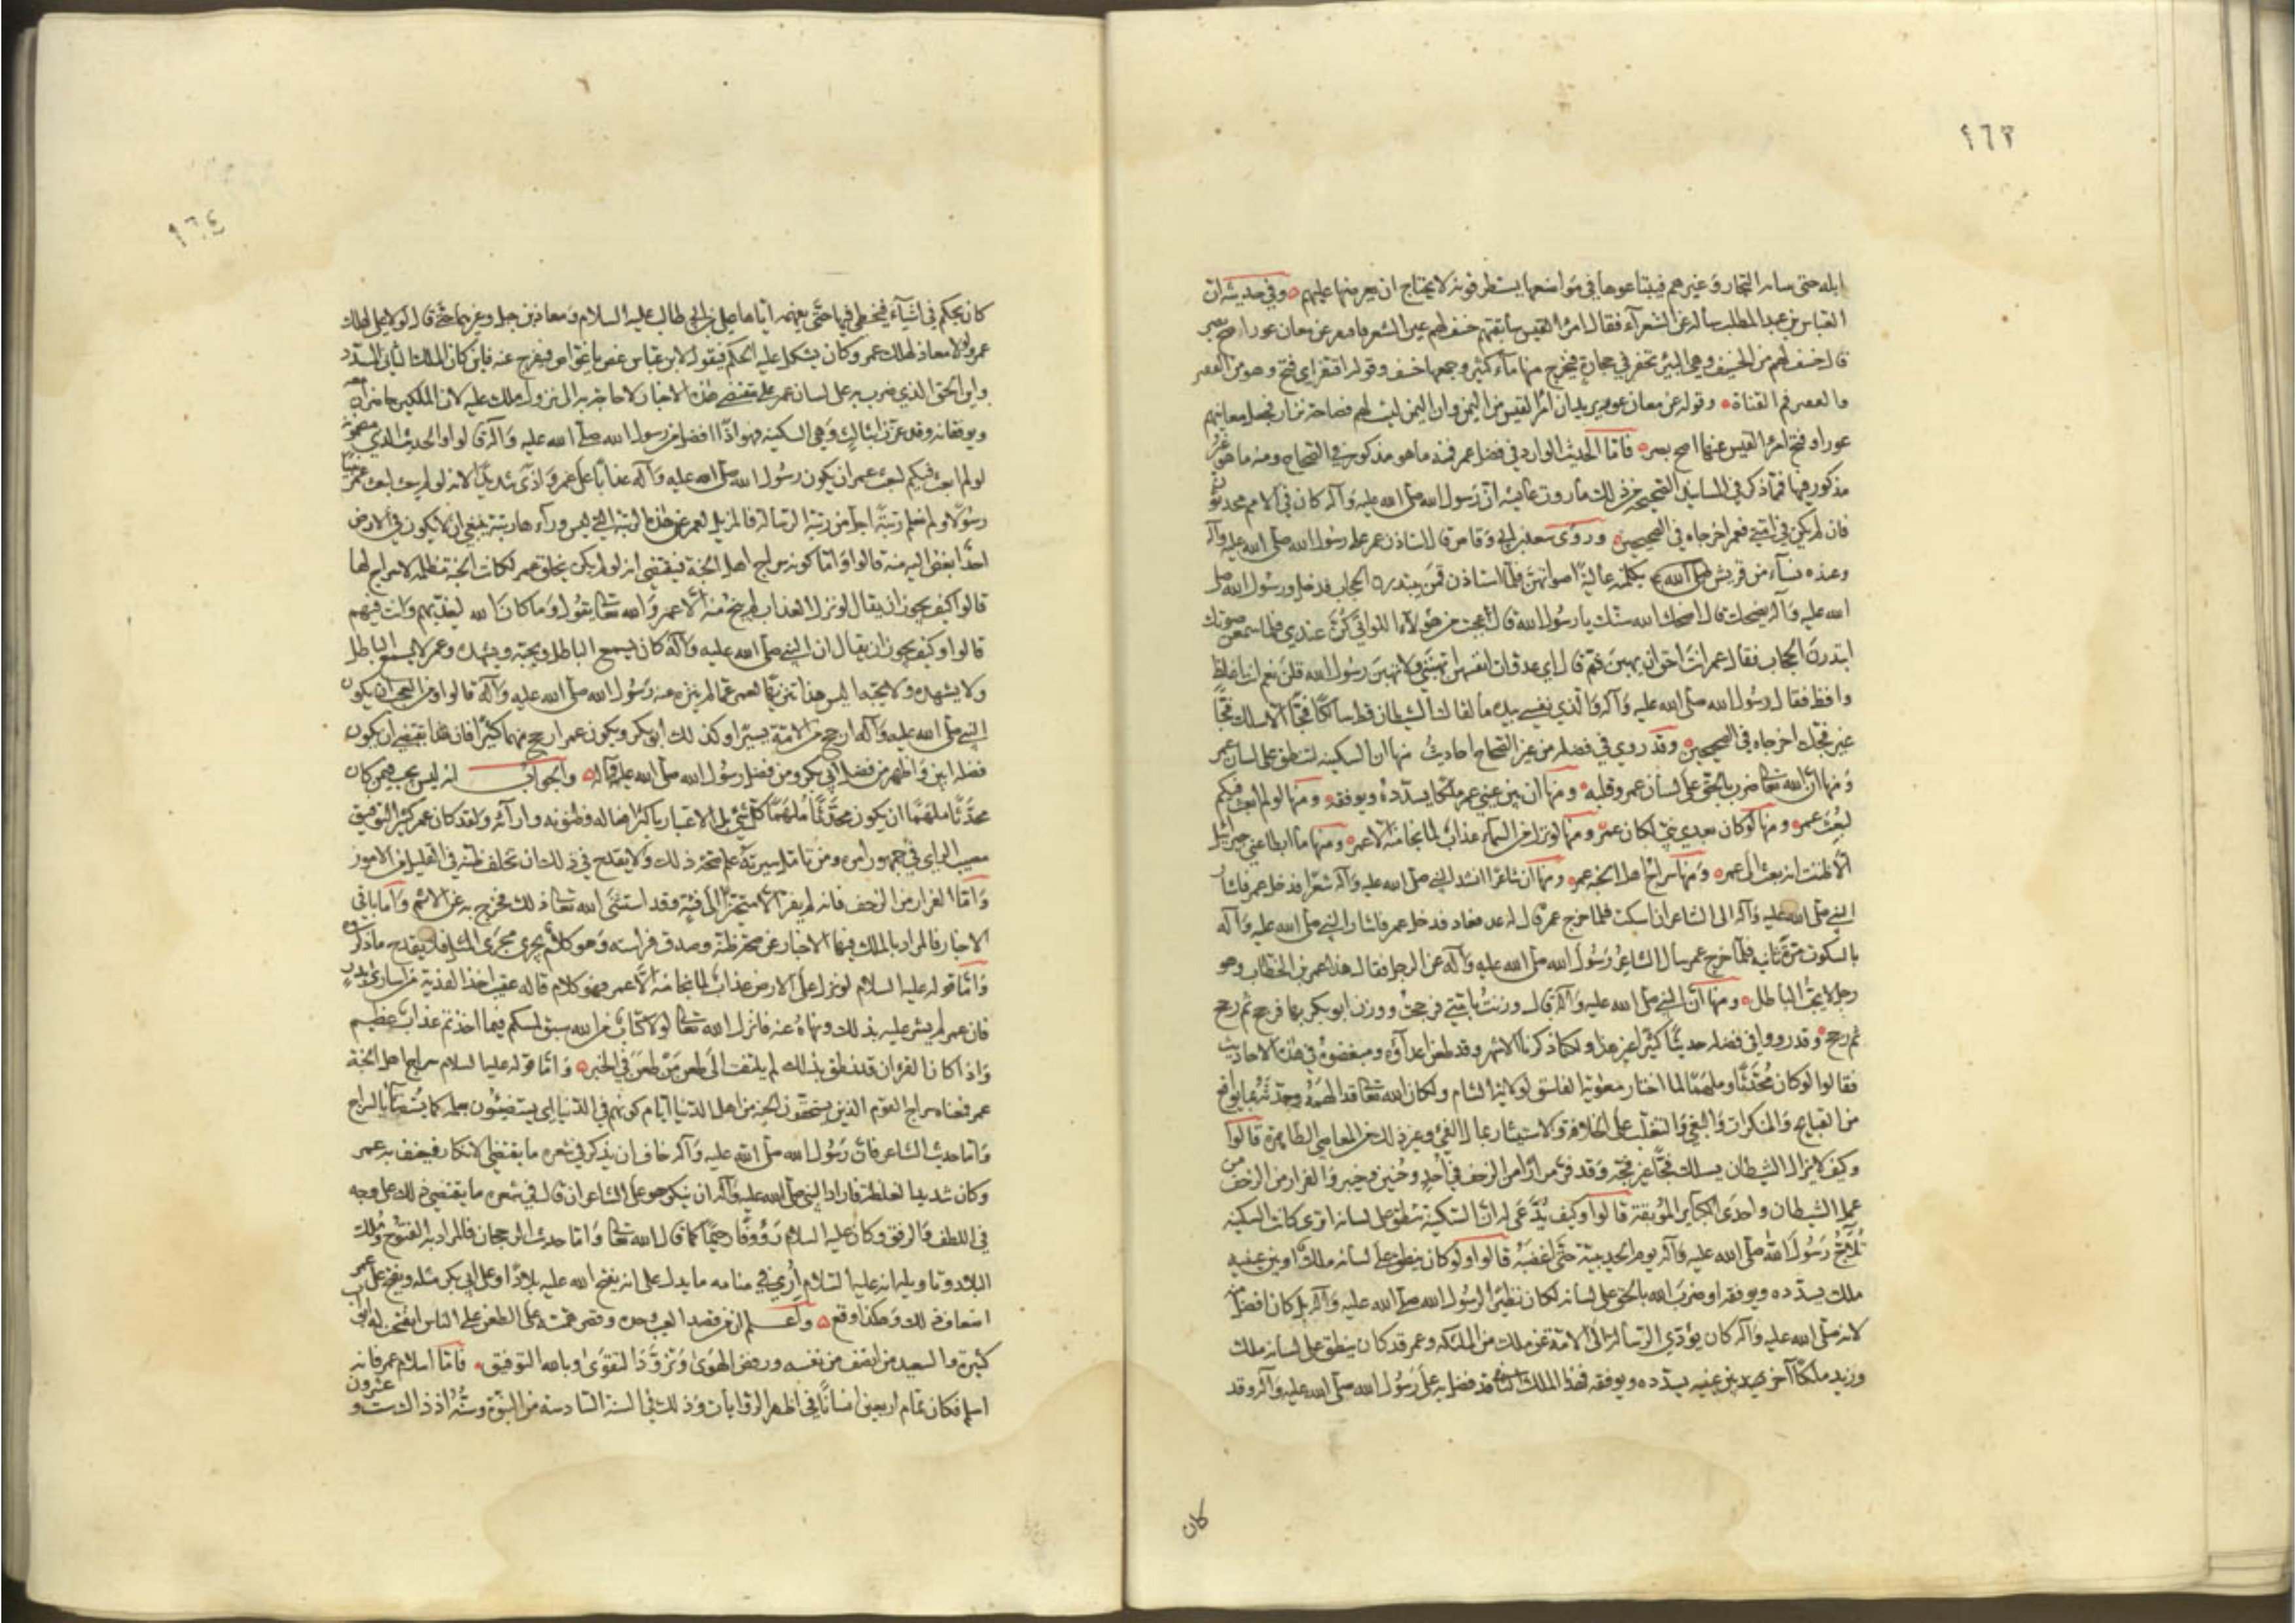 ١٦٣
ابله حتى سائر التجار وغيرهم فيبتاعوها في مواضعها يستطرقونه لا يحتاج ان يعرضها عليهم وفي حديثه ان
العباس بن عبد المطلب سأله عن الشعرآء فقال امرؤ القيس سابقهم خسف لهم عين الشعر فافتقر عن معان عور اصح بصر
قال خسف لهم من الخسيف وهي البئر تحفر في حجارة فيخرج منها مآء كثير وجمعها خسف وقوله افتقر اي فتح وهو من الفقير
والفقير فم القناة وقوله عن معان عور يريد ان امرأ القيس من اليمن وان اليمن ليست لهم فصاحة نزار فجعل معانيهم
عورا وفتح امرؤ القيس عنها اصح بصر فاما الحديث الوارد في فضل عمر فمنه ما هو مذكور في الصحاح ومنه ما هو غير
مذكور فيها فمما ذكر في المسانيد الصحيحة من ذلك ما روت عائشة ان رسول الله صلى الله عليه وآله كان في الامم محدثون
فان يكن في امتي فعمر اخرجاه في الصحيحين وروى سعد بن ابي وقاص قال استاذن عمر على رسول الله صلى الله عليه وآله
وعنده نسآء من قريش يكلمنه عالية اصواتهن فلما استاذن قمن يبتدرن الحجاب فدخل ورسول الله صلى
الله عليه وآله يضحك قال اضحك الله سنك يا رسول الله قال عجبت من هؤلآء اللواتي كن عندي فلما سمعن صوتك
ابتدرن الحجاب فقال عمر انت احق ان يهبن ثم قال اي عدوات انفسهن اتهبنني ولا تهبن رسول الله قلن نعم انت اغلظ
وافظ فقال رسول الله صلى الله عليه وآله والذي نفسي بيده ما لقيك الشيطان قط سالكا فجا الا سلك فجا
غير فجك اخرجاه في الصحيحين وقد روي في فضله من غير الصحاح احاديث منها ان السكينة لتنطق على لسان عمر
ومنها ان الله تعالى ضرب بالحق على لسان عمر وقلبه ومنها ان بين عيني عمر ملكا يسدده ويوفقه ومنها لو لم ابعث فيكم
لبعث عمر ومنها لو كان بعدي نبي لكان عمر ومنها لو نزل من السمآء عذاب لما نجا منه الا عمر ومنها ما ابطا عني جبرائيل
الا ظننت انه بعث الى عمر ومنها سراج اهل الجنة عمر ومنها ان شاعرا انشد النبي صلى الله عليه وآله شعرا فدخل عمر فاشار
النبي صلى الله عليه وآله الى الشاعر ان اسكت فلما خرج عمر قال له عد فعاد فدخل عمر فاشار النبي صلى الله عليه وآله
بالسكوت مرة ثانية فلما خرج عمر سال الشاعر رسول الله صلى الله عليه وآله عن الرجل فقال هذا عمر بن الخطاب وهو
رجل لا يحب الباطل ومنها ان النبي صلى الله عليه وآله قال وزنت بامتي فرجحت ووزن ابو بكر بها فرجح ثم رجح
ثم رجح وقد رووا في فضله حديثا كثيرا غير هذا ولكنا ذكرنا الاشهر وقد طعن اعدآؤه ومبغضوه في هذه الاحاديث
فقالوا لو كان محدثا وملهما لما اختار معوية الفاسق لولاية الشام ولكان الله تعالى قد الهمه وحدثه بما يواقع
من القبايح والمنكرات والبغي والتغلب على الخلافة والاستيثار بمال الفيء وغير ذلك من المعاصي الظاهرة قالوا
وكيف لا يزال الشيطان يسلك فجا غير فجه وقد فر مرارا من الزحف في احد وحنين وخيبر والفرار من الزحف من
عمل الشيطان واحدى الكبآئر الموبقة قالوا وكيف يدعى له ان السكينة تنطق على لسانه اترى كانت السكينة
تلاحي رسول الله صلى الله عليه وآله يوم الحديبية حتى اغضبه قالوا ولو كان ينطق على لسانه ملك او بين عينيه
ملك يسدده ويوفقه او ضرب الله بالحق على لسانه لكان نظيرا لرسول الله صلى الله عليه وآله بل كان افضل منه
لانه صلى الله عليه وآله كان يؤدي الرسالة الى الامة عن ملك من الملئكة وعمر قد كان ينطق على لسانه ملك
وزيد ملكا آخر بين عينيه يسدده ويوفقه فهذا الملك الثاني قد فضل به على رسول الله صلى الله عليه وآله وقد
كان
١٦٤
كان يحكم في اشيآء فيخطي فيها حتى يفهمه اياها علي بن ابي طالب عليه السلام ومعاذ بن جبل وغيرهما حتى قال لولا علي لهلك
عمر ولولا معاذ لهلك عمر وكان يشكل عليه الحكم فيقول لابن عباس غص يا غواص فيفرج عنه فاين كان الملك الثاني المسدد
واين الحق الذي ضرب به على لسان عمر على مقتضى هذه الاخبار لا حاجة به الى نزول ملك عليه لان الملكين حاضران معه
ويوفقانه وقد عززا بثالث وهي السكينة فهو اذا افضل من رسول الله صلى الله عليه وآله قالوا والحديث الذي مضمونه
لو لم ابعث فيكم لبعث عمر ان يكون رسول الله صلى الله عليه وآله عذابا على عمر واذى شديدا لانه لو لم يبعث لبعث عمر نبيا
رسولا ولم نعلم رتبة اجل من رتبة الرسالة فالمزيل لعمر عن هذه الرتبة التي ليس ورآءها رتبة ينبغي ان لا يكون في الارض
احد ابغض اليه منه قالوا واما كونه سراج اهل الجنة فيقتضي انه لو لم يكن يخلق عمر لكانت الجنة مظلمة لا سراج لها
قالوا كيف يجوز ان يقال لو نزل العذاب لم ينج منه الا عمر والله تعالى يقول وما كان الله ليعذبهم وانت فيهم
قالوا وكيف يجوز ان يقال ان النبي صلى الله عليه وآله كان يسمع الباطل ويحبه ويشهده وعمر لا يسمع الباطل
ولا يشهده ولا يحبه اليس هذا تنزيها لعمر عما لم ينزه عنه رسول الله صلى الله عليه وآله قالوا ومن العجب ان يكون
النبي صلى الله عليه وآله ارجح من الامة يسيرا وكذلك ابو بكر ويكون عمر ارجح منهما كثيرا فان هذا يقتضي ان يكون
فضله ابين واظهر من فضل ابي بكر ومن فضل رسول الله صلى الله عليه وآله والجواب انه ليس يجب فيمن كان
محدثا ملهما ان يكون محدثا ملهما كل شيء بل الاعتبار باكثر افعاله وظنونه وارآئه ولقد كان عمر كثير التوفيق
مصيب الراي في جمهور امره ومن تامل سيرته علم صحة ذلك ولا يقدح في ذلك ان تخلف ظنه في القليل من الامور
واما الفرار من الزحف فانه لم يفر الا متحيزا الى فئة وقد استثنى الله تعالى ذلك فخرج به عن الاثم واما باقي
الاخبار فالمراد بالملك فيها الاخبار عن صحة ظنه وصدق فراسته وهو كلام يجري مجرى المثل فلا يقدح ما ذكروه
واما قوله عليه السلام لو نزل على الارض عذاب لما نجا منه الا عمر فهو كلام قاله عقيب اخذ الفدية من اسارى بدر
فان عمر لم يشر عليه بذلك ونهاه عنه فانزل الله تعالى لولا كتاب من الله سبق لمسكم فيما اخذتم عذاب عظيم
واذا كان القرآن قد نطق بذلك لم يلتفت الى طعن من طعن في الخبر واما قوله عليه السلام سراج اهل الجنة
عمر فمعناه سراج القوم الذين يستحقون الجنة من اهل الدنيا ايام كونهم في الدنيا اي يستضيئون بعلمه كما يستضآء بالسراج
واما حديث الشاعر فان رسول الله صلى الله عليه وآله خاف ان يذكر في شعره ما يقتضي الانكار فيعنف به عمر
وكان شديد الغلظة فاراد النبي صلى الله عليه وآله ان ينكر هو على الشاعر ان قال في شعره ما يقتضي ذلك على وجه
في اللطف والرفق وكان عليه السلام رؤوفا رحيما كما قال الله تعالى واما حديث الرجحان فالمراد به الفتوح وملك
البلاد وتاويله انه عليه السلام اري في منامه ما يدل على انه يفتح الله عليه بلادا وعلى ابي بكر مثله ويفتح على عمر
اضعاف ذلك وهكذا وقع واعلم ان من قصد العيب وجده وقصر همته على الطعن على الناس انفتحت له ابواب
كثيرة والسعيد من انصف من نفسه ورفض الهوى وتزود التقوى وبالله التوفيق فاما اسلام عمر فانه
اسلم فكان تمام اربعين انسانا في اظهر الروايات وذلك في السنة السادسة من النبوة وسنه اذ ذاك ست وعشرون